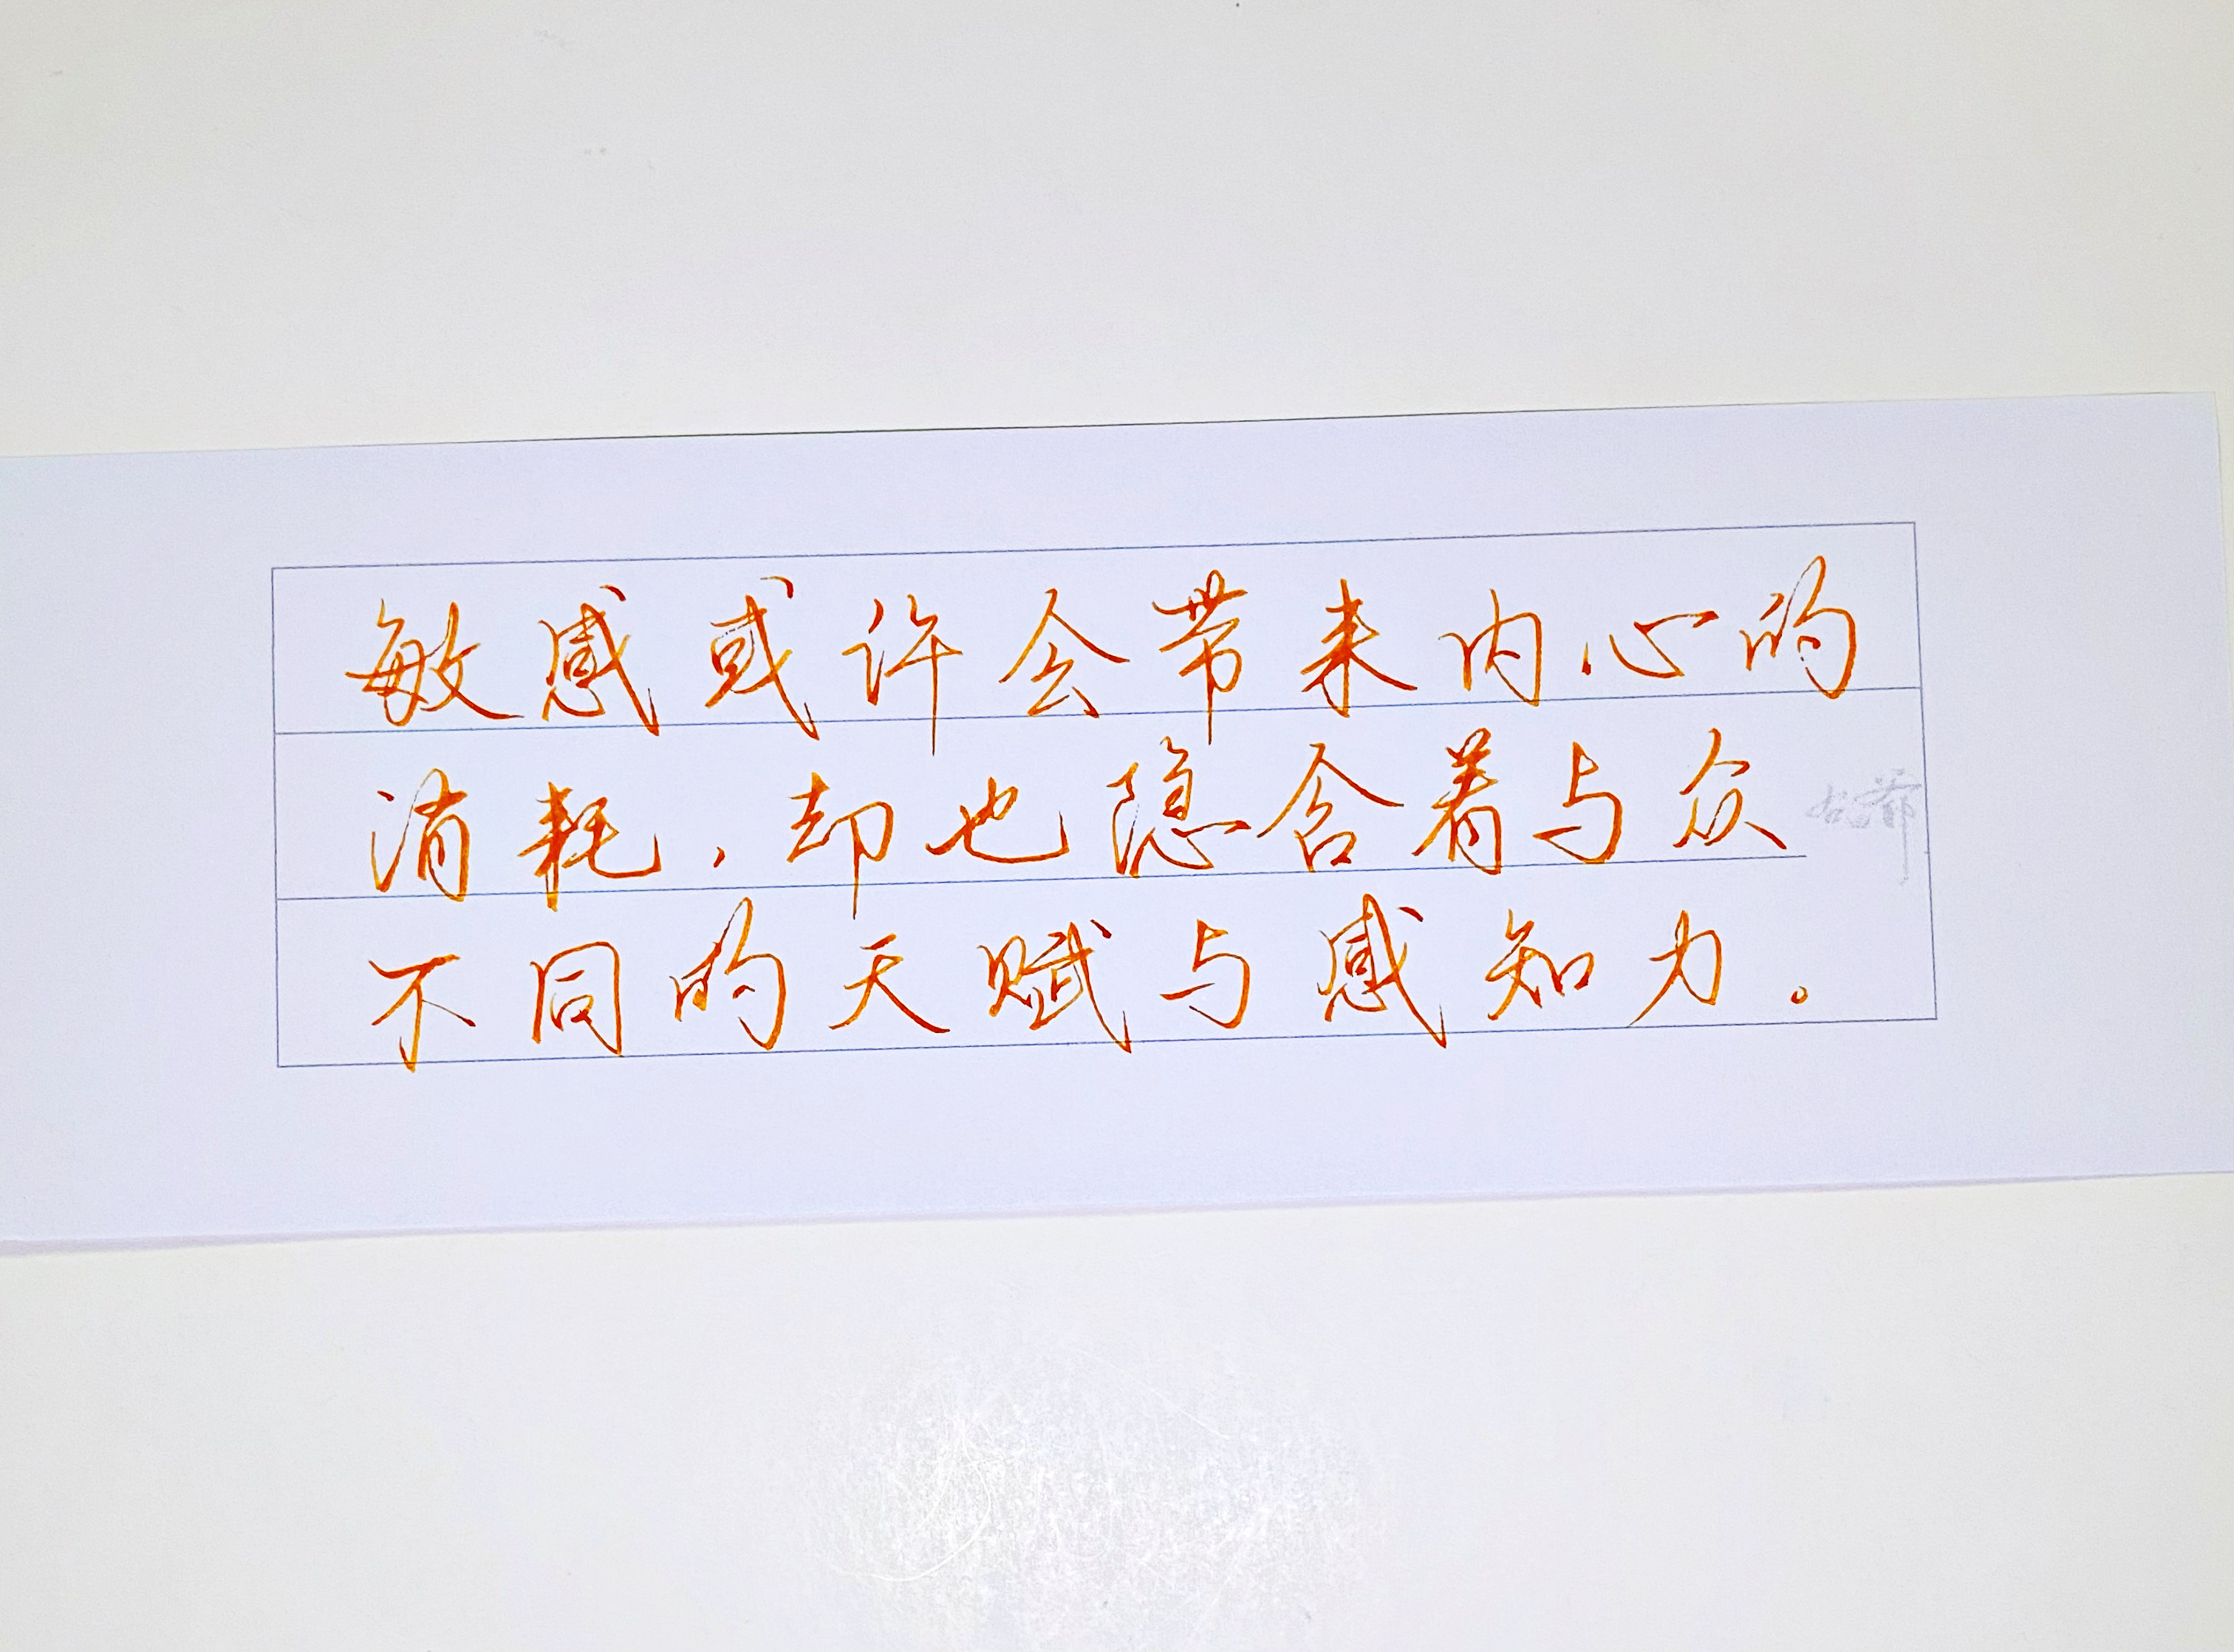 敏感或许会带来内心的
消耗，却也隐含着与众
不同的天赋与感知力。